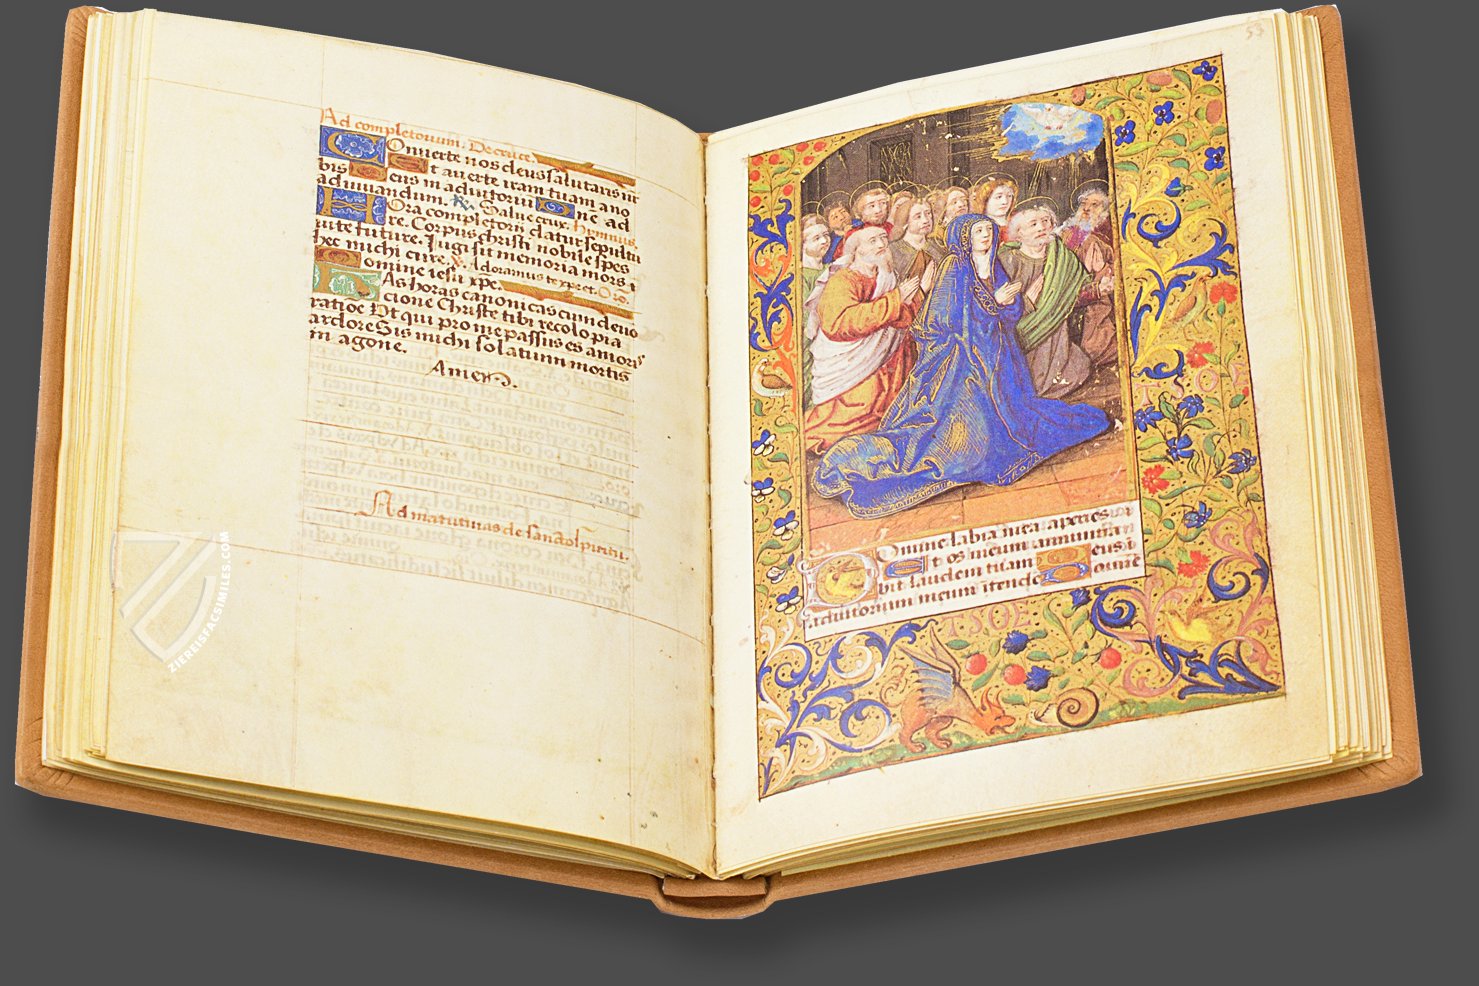 Ad completorium. De cruce.
Onuerte nos deus salutaris nr
Et auerte iram tuam ano
bis Deus in adiutoriu
adiuuandum. R. Salue crux. Hymnus.
Dne ad
Ora completorii datur sepultu
re. Corpus christi nobile spes
uite future. Iugi sit memoria mors
hec michi cure. V. Adoramus te xpe et. Oro.
omine iesu xpe.
As horas canonicas cum deuo
cione Christe tibi recolo pia
ratioe Vt qui pro me passus es amoris
ardore Sis michi solatium mortis
in agone.
Amen.
Ad matutinas de sancto spiritu.
53
Domine labia mea aperies
Et os meum annuncia
bit laudem tuam Deus i
adiutorium meum itende Domine
ZIEREISFACSIMILES.COM